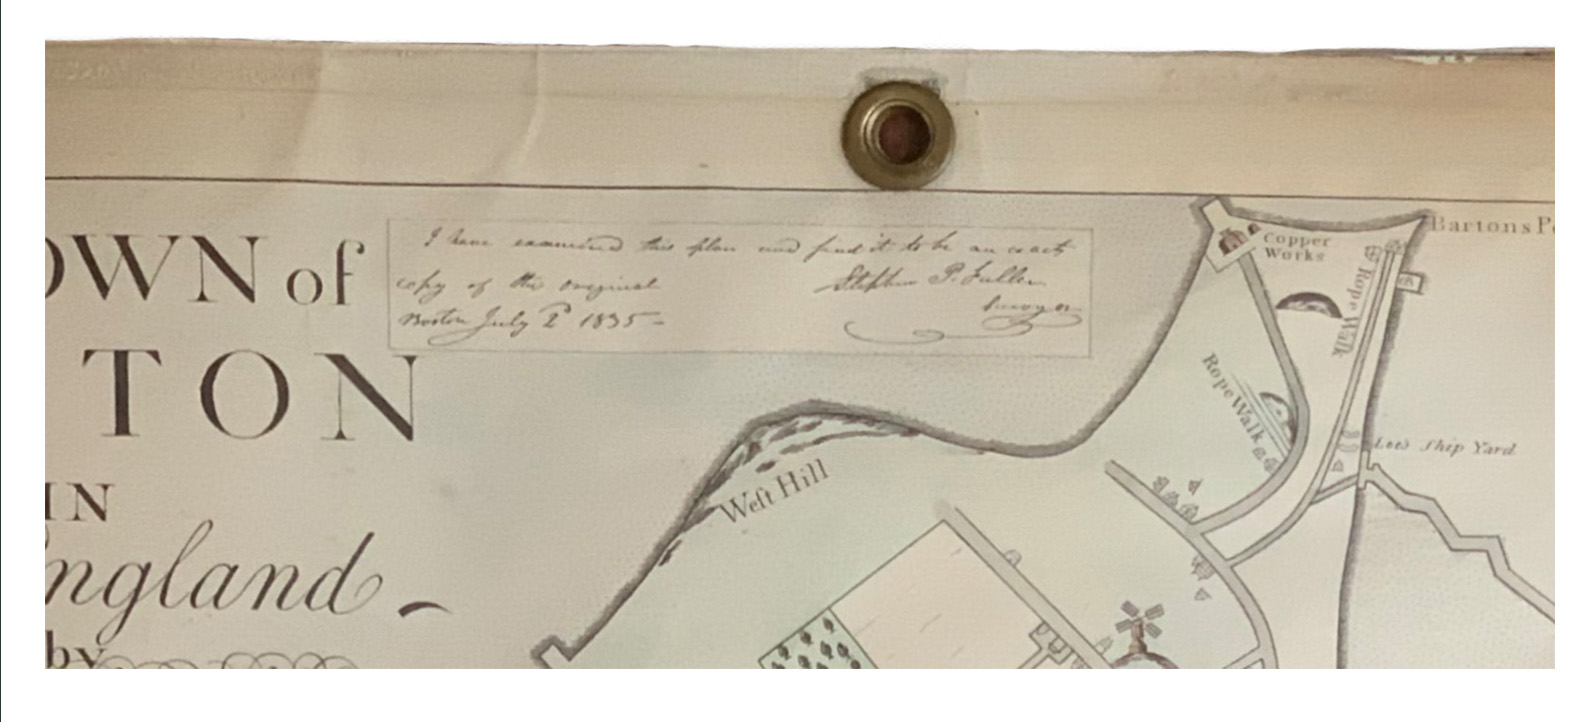 OWN of
TON
IN
ngland
by
I have examined this plan and find it to be an exact
copy of the original
Stephen P. Fuller
Surveyor
Boston July 2d 1835-
Bartons Po
Copper
Works
Rope Walk
Rope Walk
Lees Ship Yard
West Hill